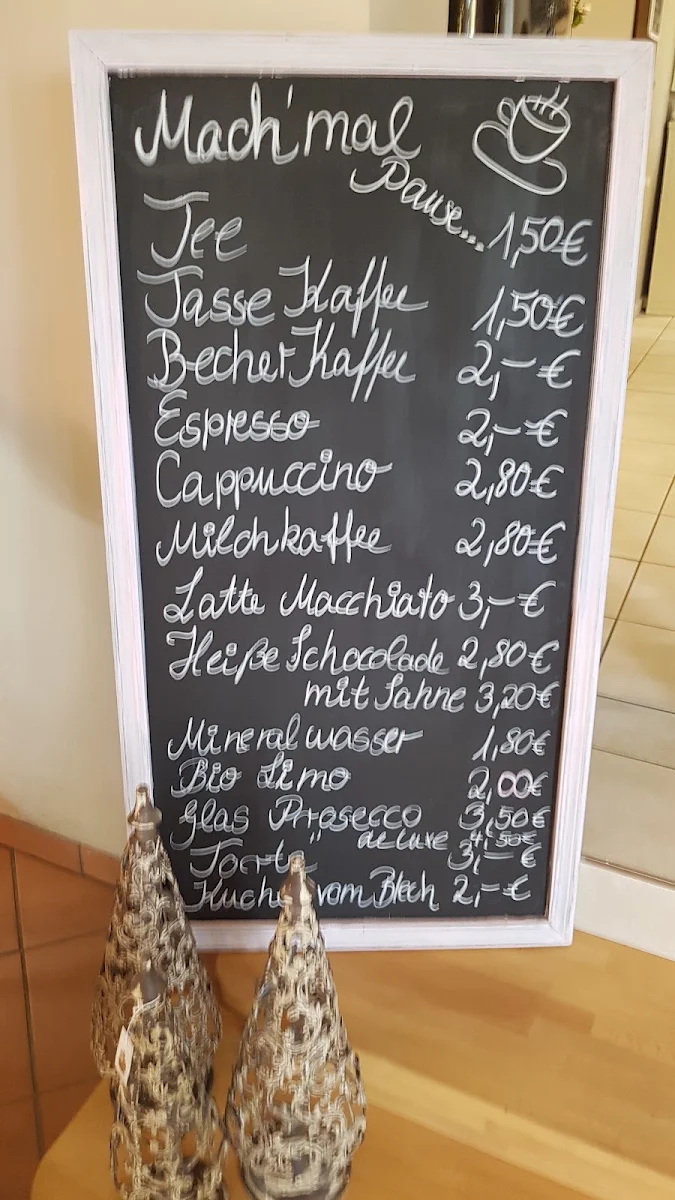 Mach' mal
Pause...
Tee 1,50€
Tasse Kaffee 1,50€
Becher Kaffee 2,-€
Espresso 2,-€
Cappuccino 2,80€
Milchkaffee 2,80€
Latte Macchiato 3,-€
Heiße Schocolade 2,80€
mit Sahne 3,20€
Mineralwasser 1,80€
Bio Limo 2,00€
Glas Prosecco 3,50€
" deluxe 4,50€
Torte 3,-€
Kuche vom Blech 2,-€